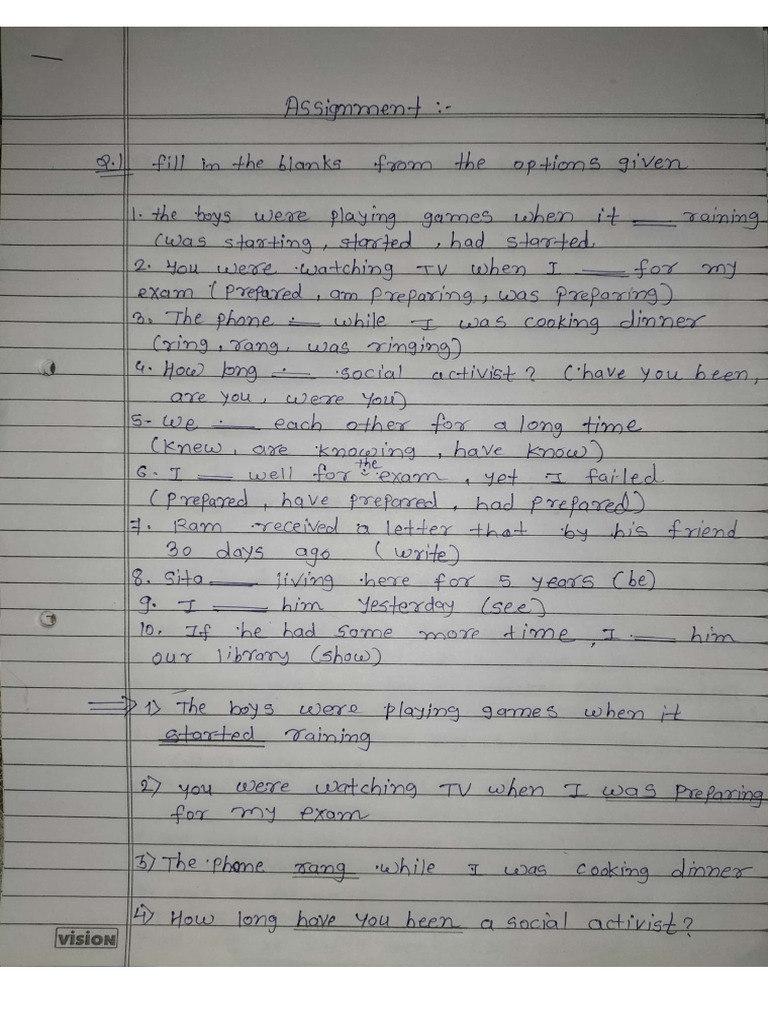 Assignment :-
Q.1 fill in the blanks from the options given
1. the boys were playing games when it ___ raining
(was starting, started, had started,
2. You were watching TV when I ___ for my
exam (prepared, am preparing, was preparing)
3. The phone ___ while I was cooking dinner
(ring, rang, was ringing)
4. How long ___ social activist? (have you been,
are you, were you)
5- We ___ each other for a long time
(knew, are knowing, have know)
6. I ___ well for the exam, yet I failed.
(prepared, have prepared, had prepared)
7. Ram received a letter that by his friend
30 days ago (write)
8. Sita ___ living here for 5 years (be)
9. I ___ him yesterday (see)
10. If he had some more time, I ___ him
our library (show)
⇒ 1) The boys were playing games when it
started raining
2) you were watching TV when I was preparing
for my exam
3) The phone rang while I was cooking dinner
4) How long have you been a social activist?
VISION